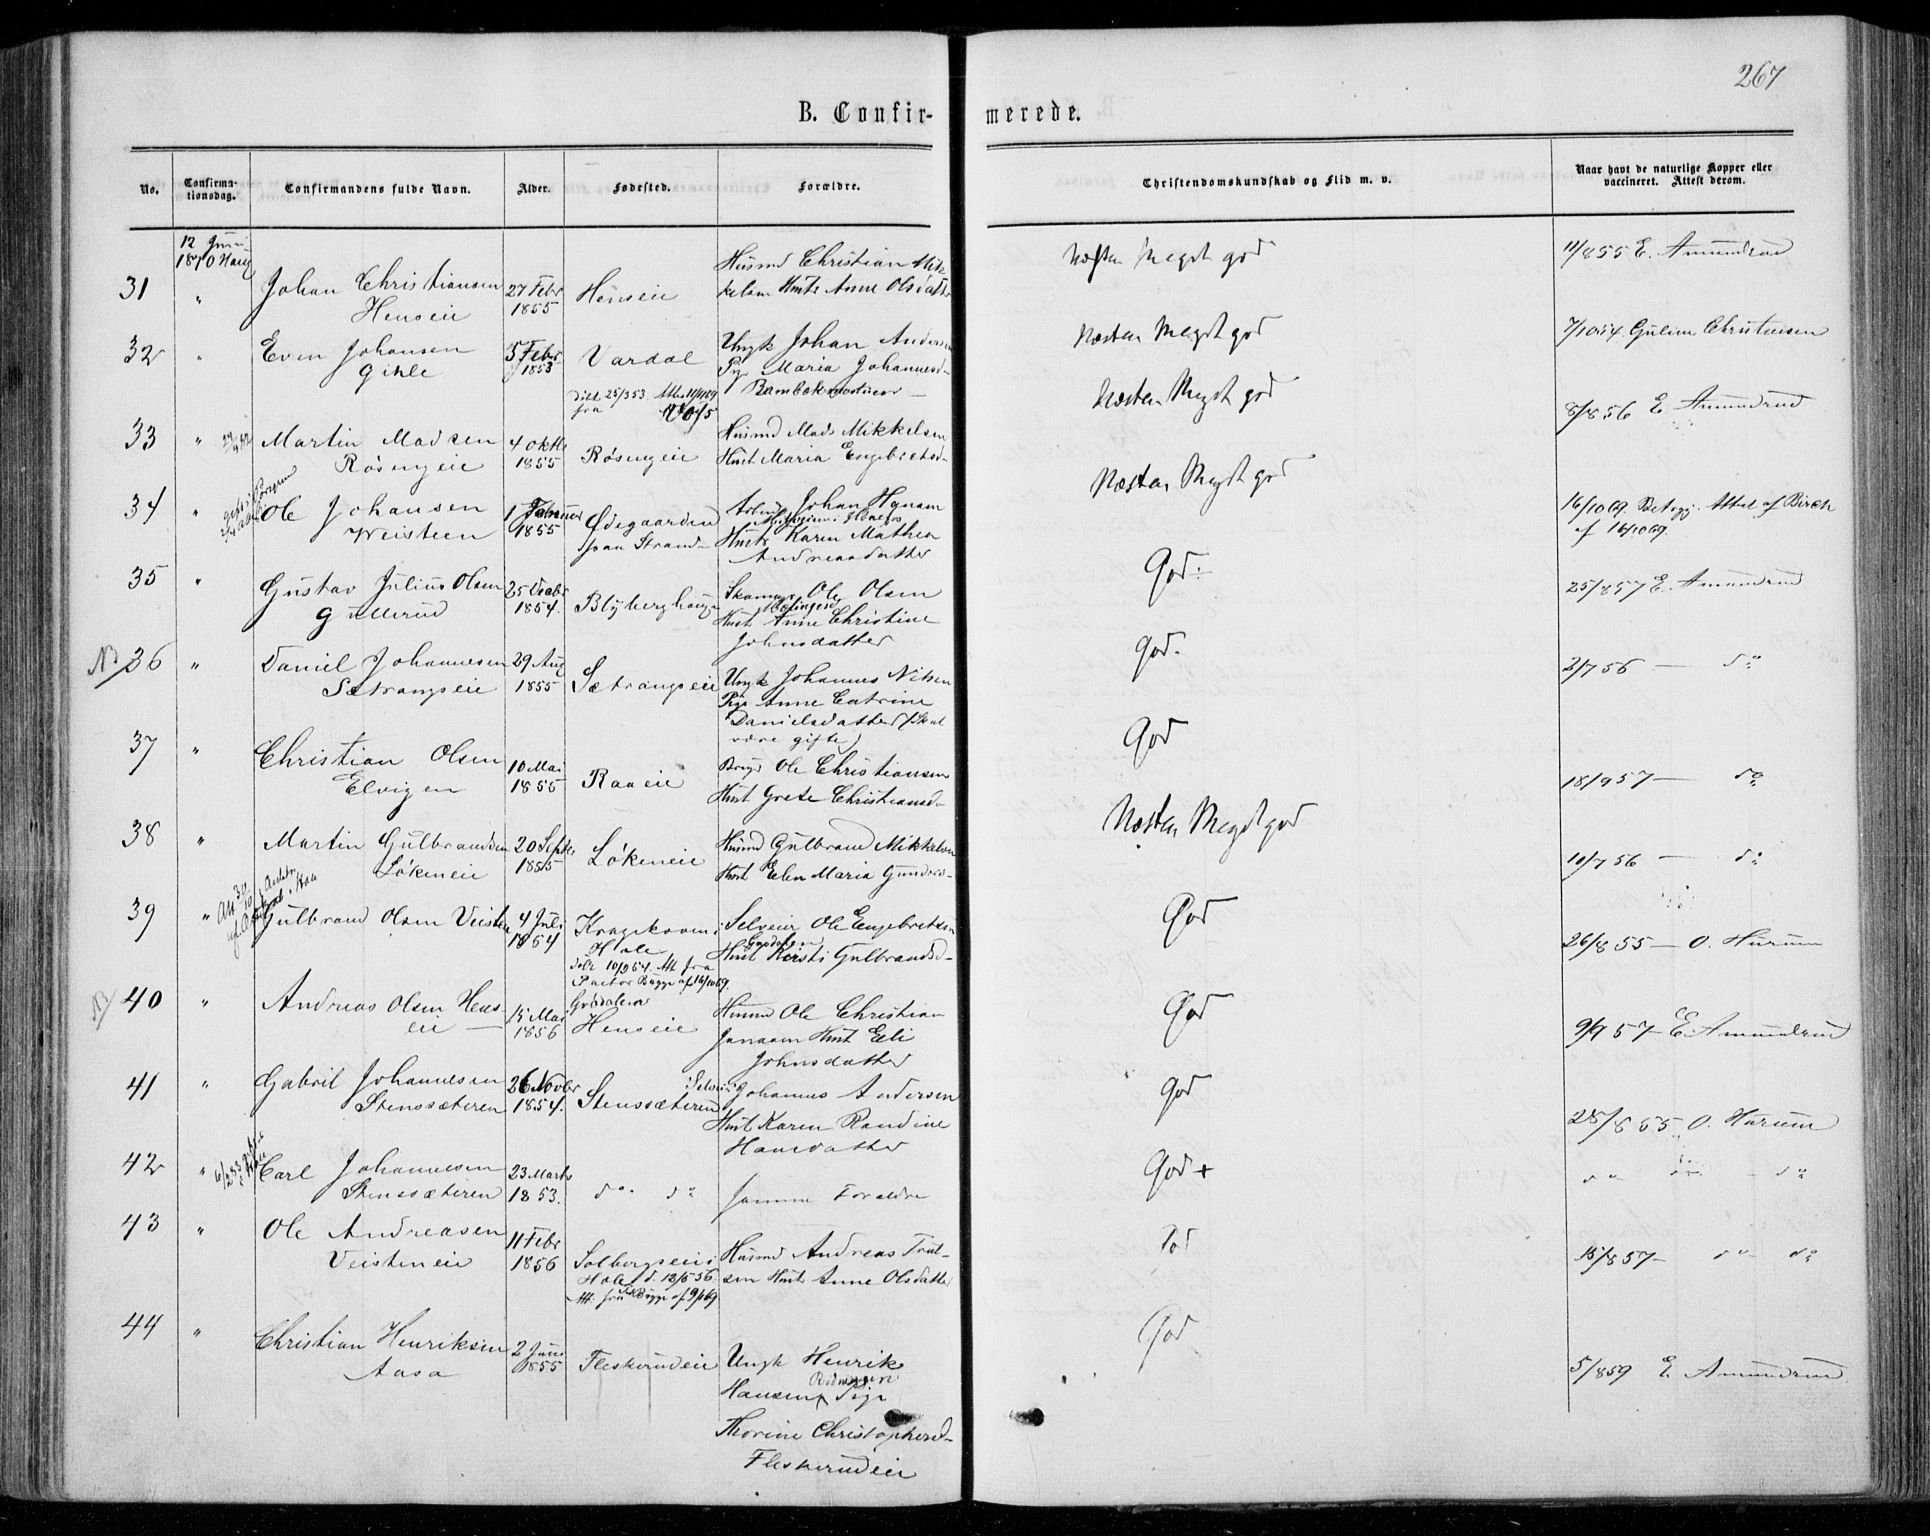 267
B. Confirmerede.
No.
Confirmationsdag.
Confirmandens fulde Navn.
Alder.
Fødested.
Forældre.
Christendomskundskab og Flid m. v.
Naar havt de naturlige Kopper eller
vaccineret. Attest derom.
12 Juni
1870 Haug
31 " Johan Christiansen
Henseie
27 Febr
1855
Henseie
Husmd Christian Mik-
kelsen Hust Anne Olsdatter
Næsten Meget god
11/8 55 E. Amundrud
32 " Even Johansen
Gihle
5 Febr
1853
Vardal
Ungk Johan Andersen
Pige Maria Johannesd-
Næsten Meget god
7/10 54 Guline Christensen
33 " Martin Madsen
Røsengeie
4 Oktb
1855
Røsengeie
Husmd Mads Mikkelsen
Hust Maria Engebretsd-
Næsten Meget god
8/8 56 E. Amundrud
34 " Ole Johansen
Weisteen
1855
Ødegaarden
paa Strand-
Johan Hansen
Hust Karen Mathea
Andreasdatter
Næsten Meget god
16/10 69. Attest af Birch
af 16/10 69.
35 " Gustav Julius Olsen
Gullerud
25 Decbr
1854.
Blyberghaugen
Ole Olsen
Hust Anne Christine
Johnsdatter
God÷
25/8 57 E. Amundrud
36 " Daniel Johannesen
Sætrangseie
29 Aug
1855
Sætrangseie
Ungk Johannes Nilsen
Pige Anne Catrine
Danielsdatter (skal
være gifte)
God.
2/7 56 — do
37 " Christian Olsen
Elvigen
10 Mai
1855
Raaeie
Ole Christiansen
Hust Grete Christiansd-
God
18/9 57 — do
38 " Martin Gulbrandsen
Løkeneie
20 Septbr
1855
Løkeneie
Husmd Gulbrand Mikkelsen
Hust Elen Maria Gundersd-
Næsten Meget god
10/7 56 — do
39 " Gulbrand Olsen Veisten
4 Juli
1854
Hole
Pastor Bugge af 16/10 69.
Selveier Ole Engebretsen
Hust Kirsti Gulbrandsd-
God
26/8 55 — O. Hurum
40 " Andreas Olsen Hens-
eie —
15 Mai
1856
Henseie
Husmd Ole Christian
Jonasen Hust Eli
Johnsdatter
God
9/9 57 — E. Amundrud
41 " Gabriel Johannesen
Stenssæteren
26 Novbr
1854.
Stenssæteren
Selveier Johannes Andersen
Hust Karen Randine
Hansdatter
God
28/8 55 O. Hurum
42 " Carl Johannesen
Stenssæteren
23 Marts
1853.
do do
Samme Forældre
God +
do do - do
43 " Ole Andreasen
Veisteneie
11 Febr
1856
Solbergseie i
Hole d. 12/5 56
Att. fra Bugge af 9/1 69
Husmd Andreas Trul-
sen Hust Anne Olsdatter
God
15/8 57 - do - do
44 " Christian Henriksen
Aasa
2 Juni
1855
Fleskerudeie
Ungk Henrik
Hansen Pige
Thorine Christophersd-
Fleskerudeie
God
5/8 59 E. Amundrud